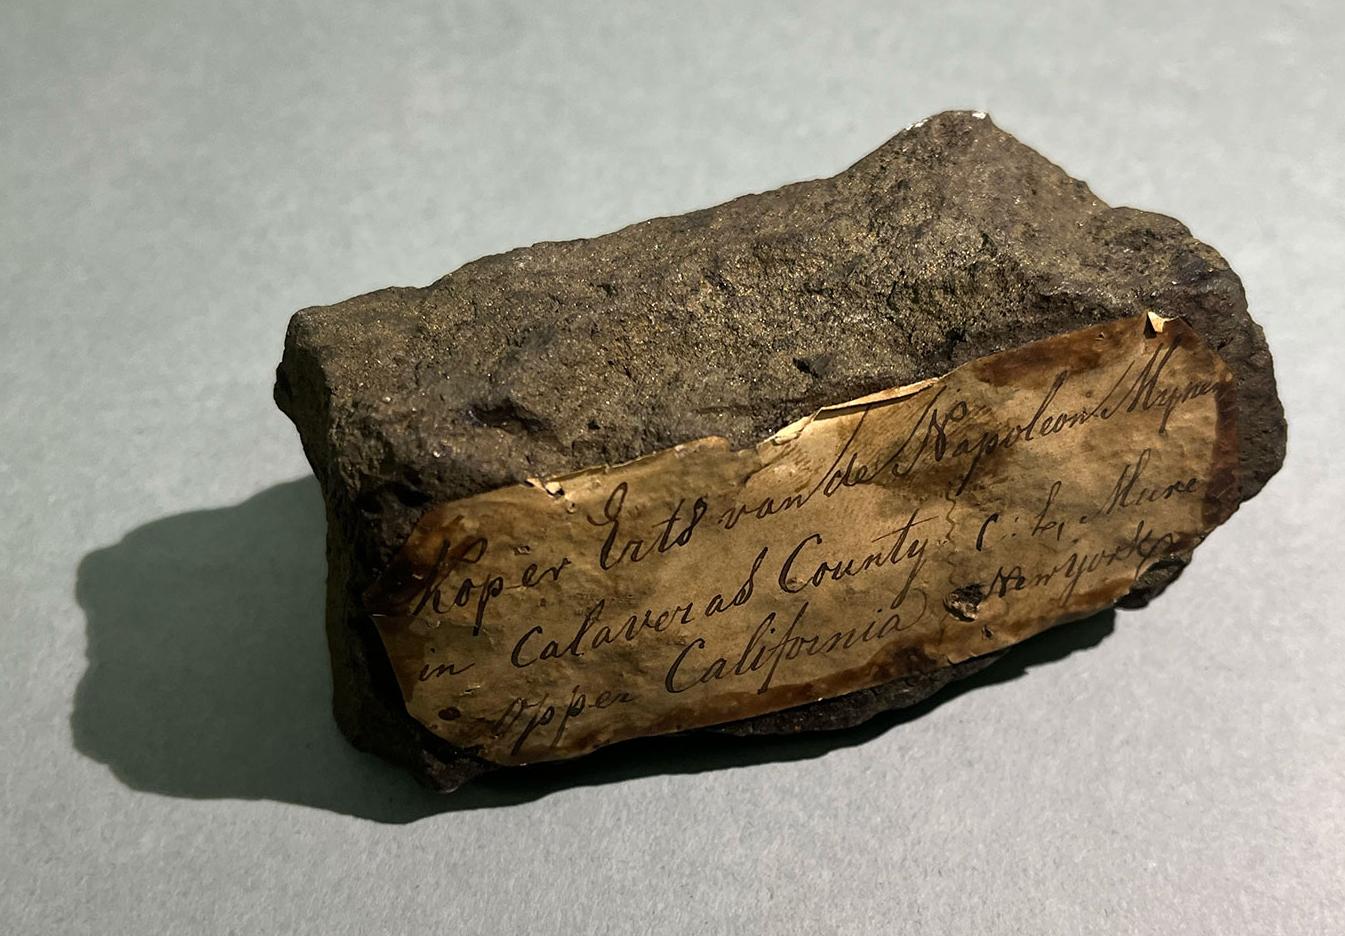 Kopër Erts van de Napoleon Mynen
in Calaveras County
Opper California
C: L, Mure
New york